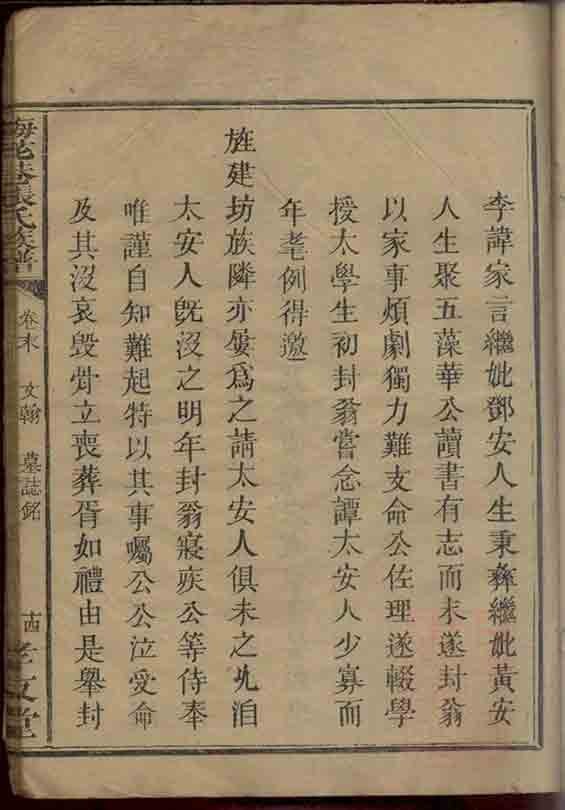 李諱家言繼妣鄧安人生秉彝繼妣黃安
人生聚五藻華公讀書有志而未遂封翁
以家事煩劇獨力難支命公佐理遂輟學
授太學生初封翁嘗念譚太安人少寡而
年耄例得邀
旌建坊族隣亦屢爲之請太安人俱未之允洎
太安人旣沒之明年封翁寢疾公等侍奉
唯謹自知難起特以其事囑公公泣受命
及其沒哀毀骨立喪葬胥如禮由是舉封
梅花巷張氏族譜
卷末 文翰 墓誌銘
十四 孝友堂